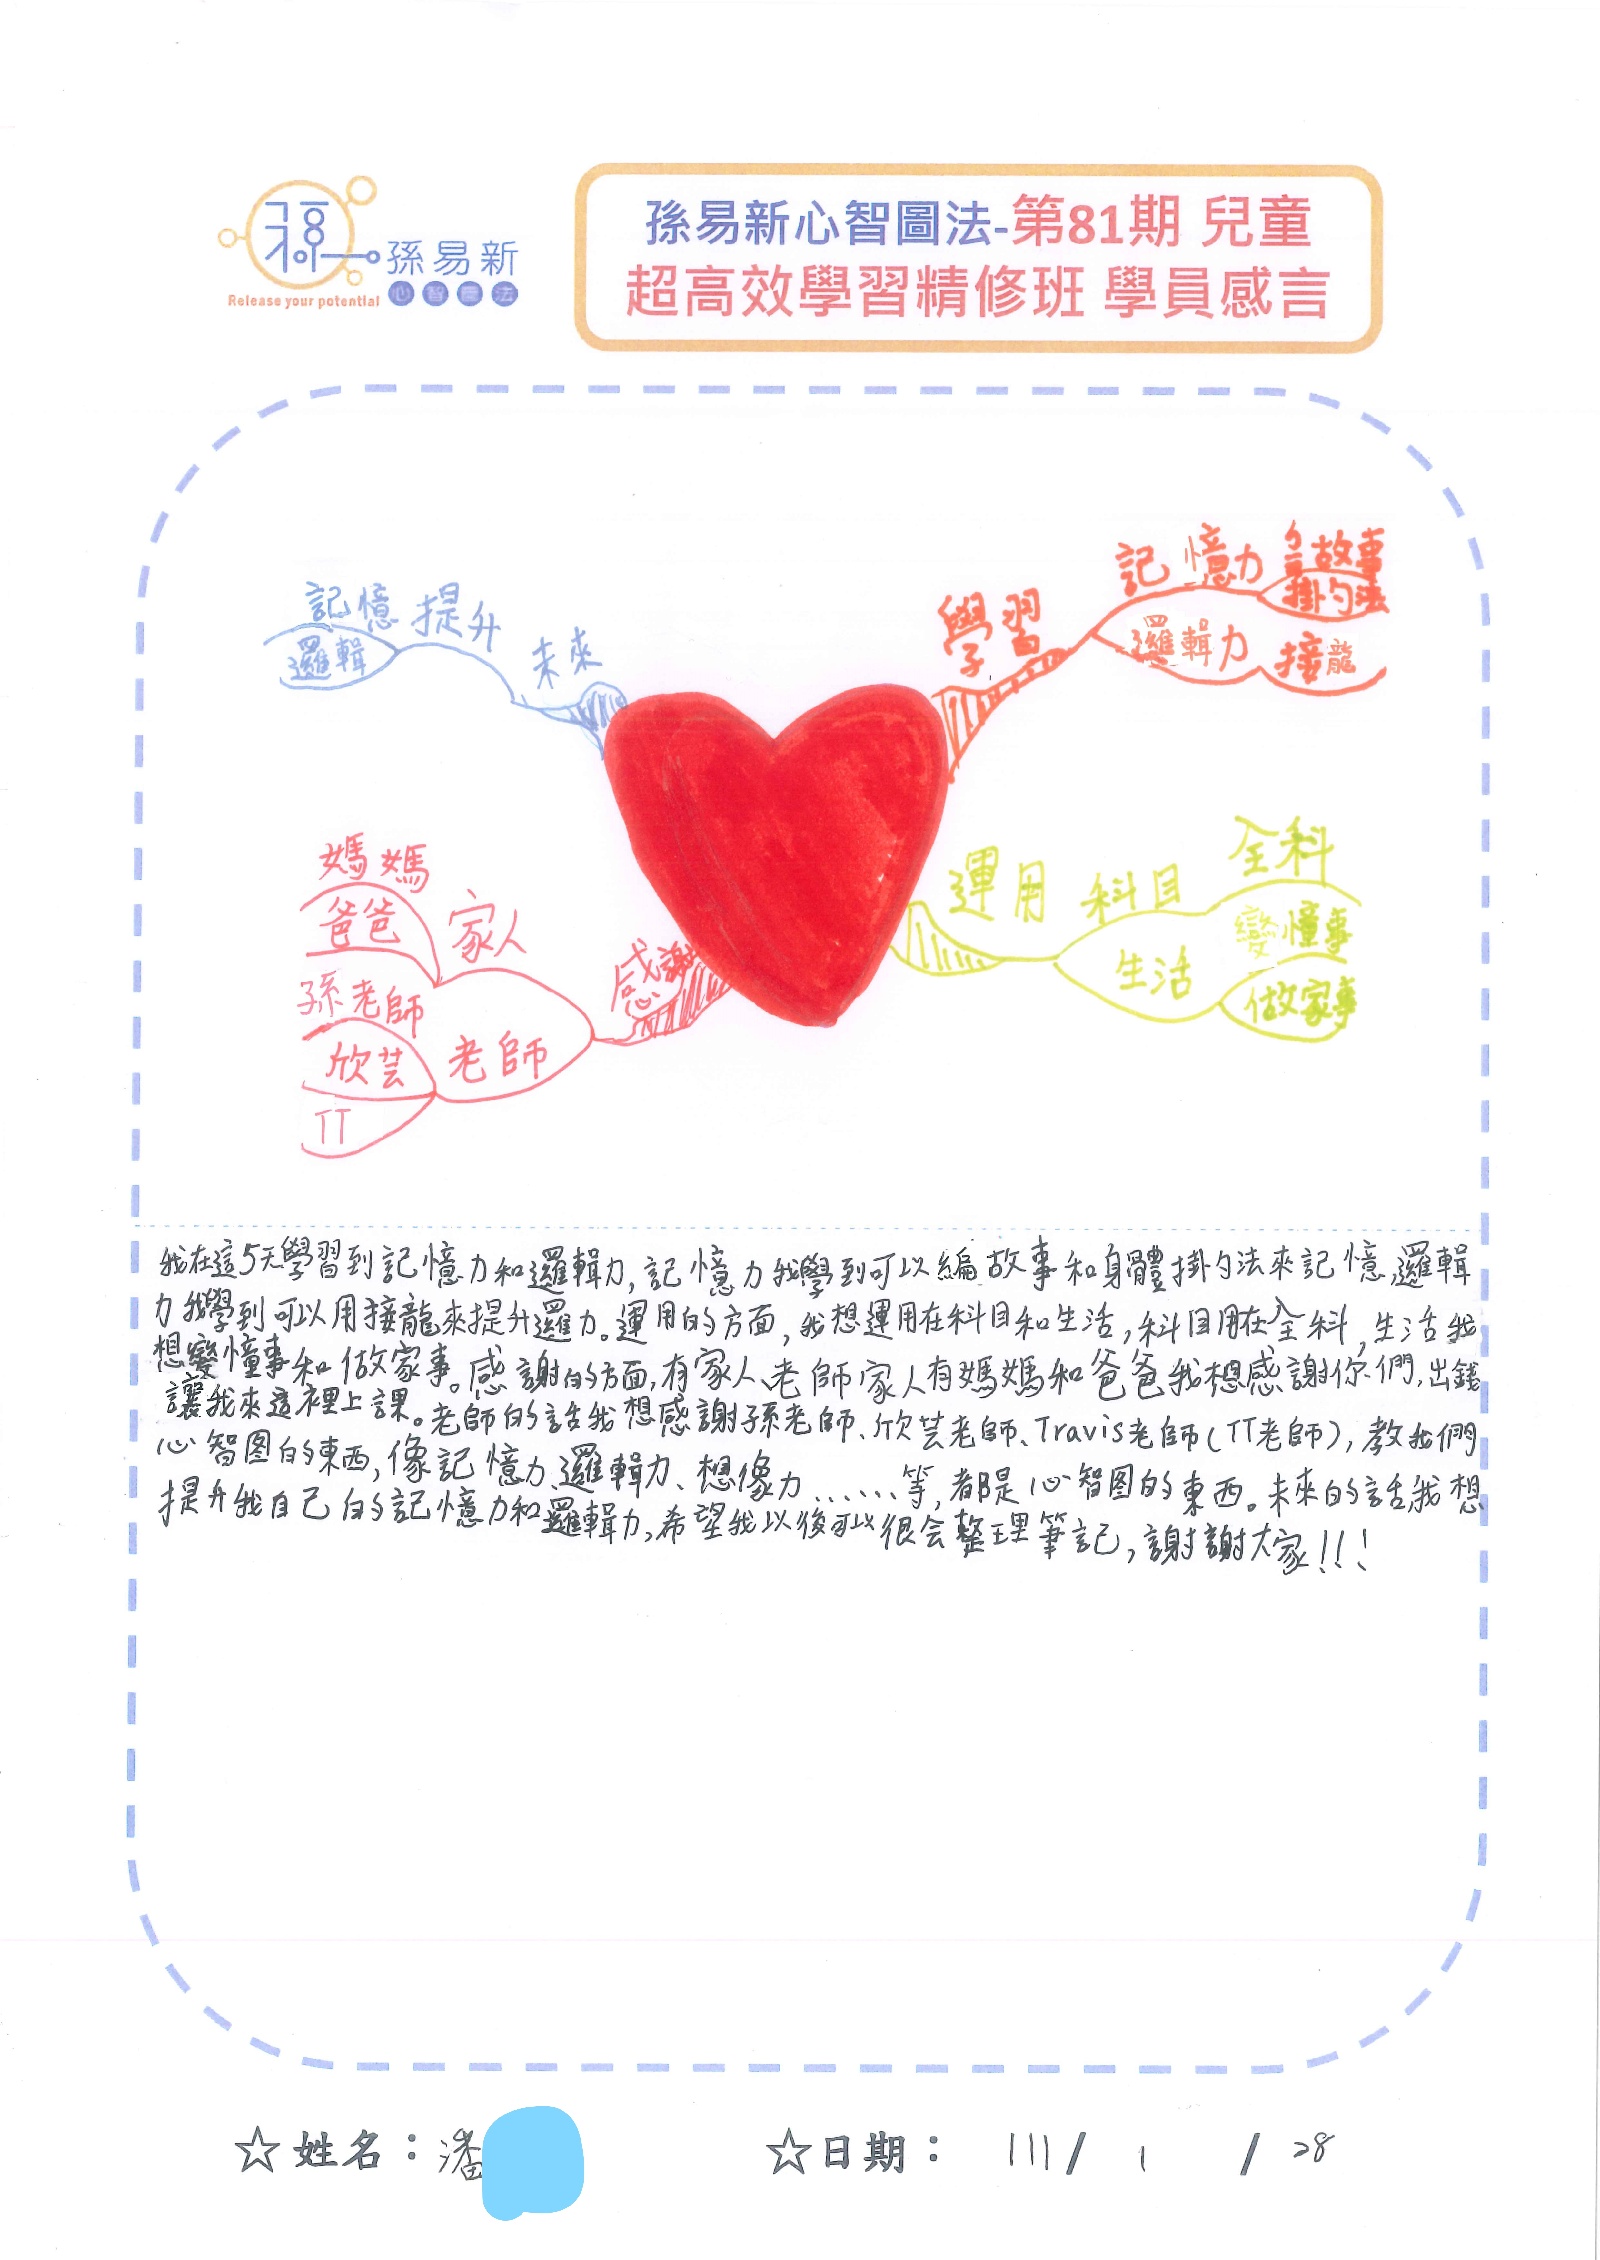 孫易新
Release your potential
心智圖法
孫易新心智圖法-第81期 兒童
超高效學習精修班 學員感言
學習
記憶力
故事
掛勾法
邏輯力
接龍
運用
科目
全科
生活
變懂事
做家事
感謝
家人
媽媽
爸爸
老師
孫老師
欣芸
TT
未來
提升
記憶
邏輯
我在這5天學習到記憶力和邏輯力,記憶力我學到可以編故事和身體掛勾法來記憶,邏輯
力我學到可以用接龍來提升邏力。運用的方面,我想運用在科目和生活,科目用在全科,生活我
想變懂事和做家事。感謝的方面,有家人、老師家人有媽媽和爸爸我想感謝你們,出錢
讓我來這裡上課。老師的話我想感謝孫老師、欣芸老師、Travis老師(TT老師),教我們
心智图的東西,像記憶力、邏輯力、想像力......等,都是心智图的東西。未來的話,我想
提升我自己的記憶力和邏輯力,希望我以後可以很会整理筆記,謝謝大家!!!
☆姓名:潘
☆日期: 111/ 1 /28